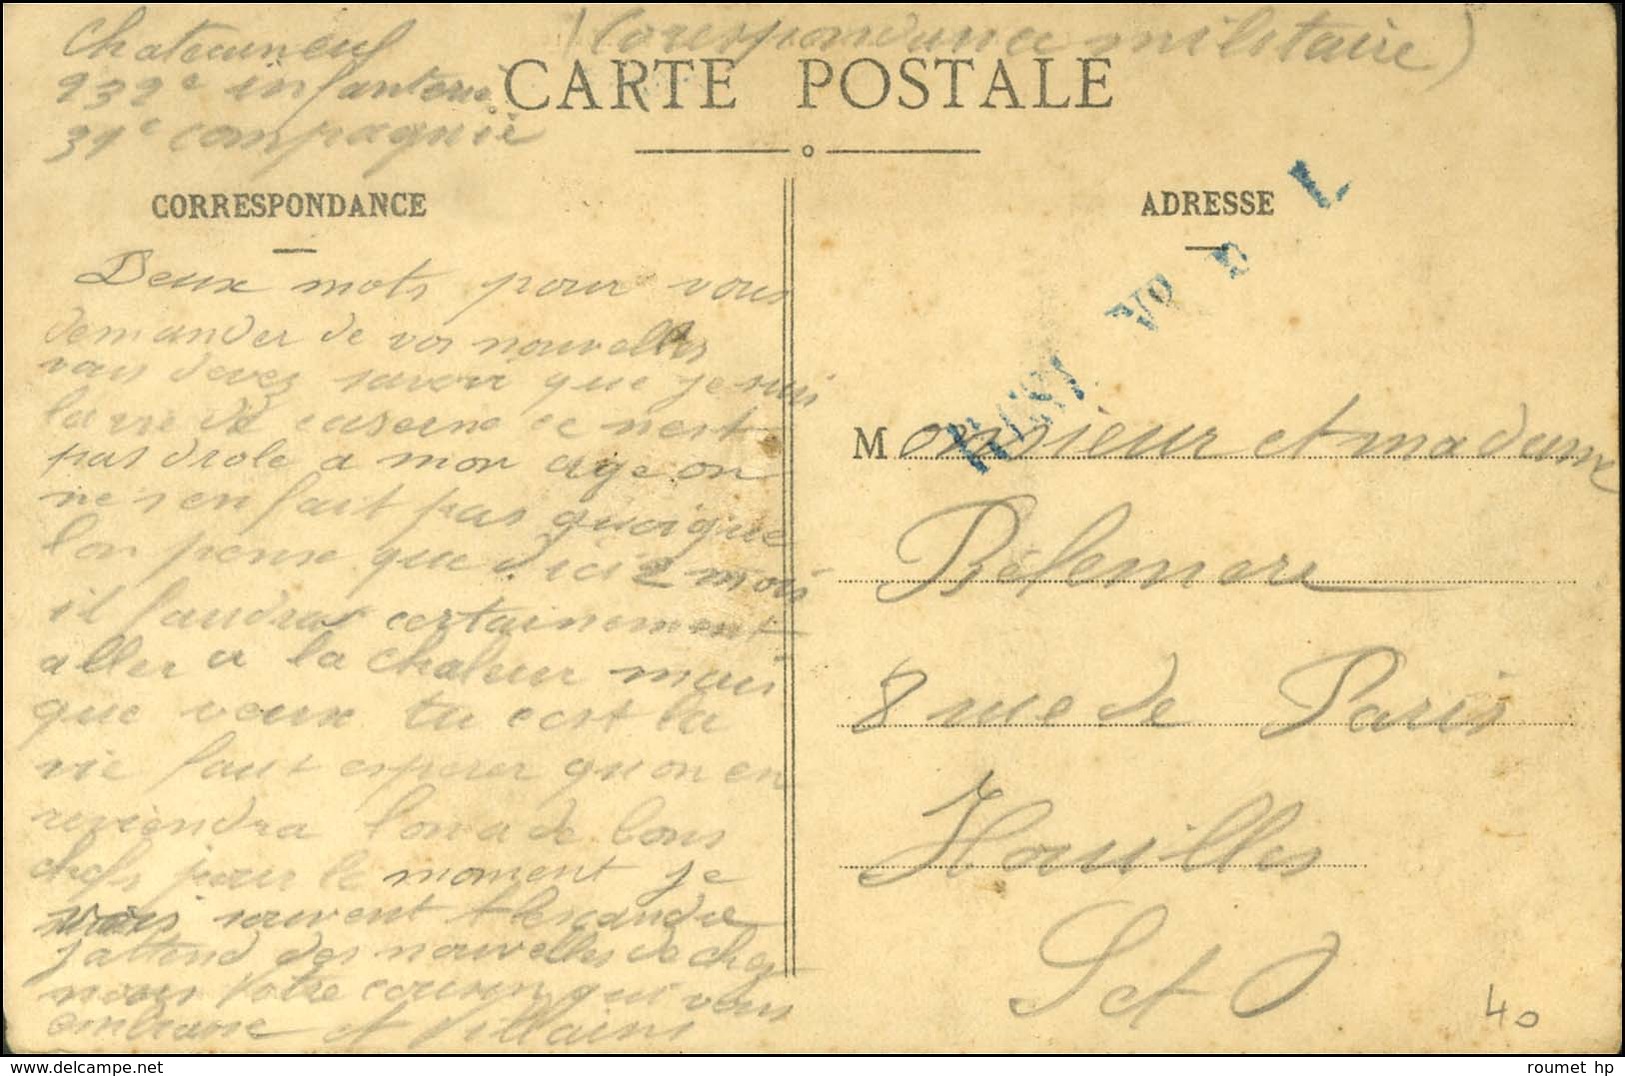 Chateauneuf
232e infanterie
31e compagnie
(Corespondance militaire)
CARTE POSTALE
CORRESPONDANCE
ADRESSE
Deux mots pour vous
demander de vos nouvelles
vous devez savoir que je suis
la vie de caserne ce nest
pas drole a mon age on
ne s'en fait pas quoique
lon pense que dici 2 mois
il faudras certainement
aller a la chaleur mais
que veux tu cest la
vie faut esperer quon en
reviendra lon a de bons
chefs pour le moment je
vois souvent Alexandre
j'attend des nouvelles de chez
vous votre cousin qui vous
embrasse et Villains
No D L
Monsieur et madame
Bélemere
8 rue de Paris
Houilles
S et O
40
roumet hp